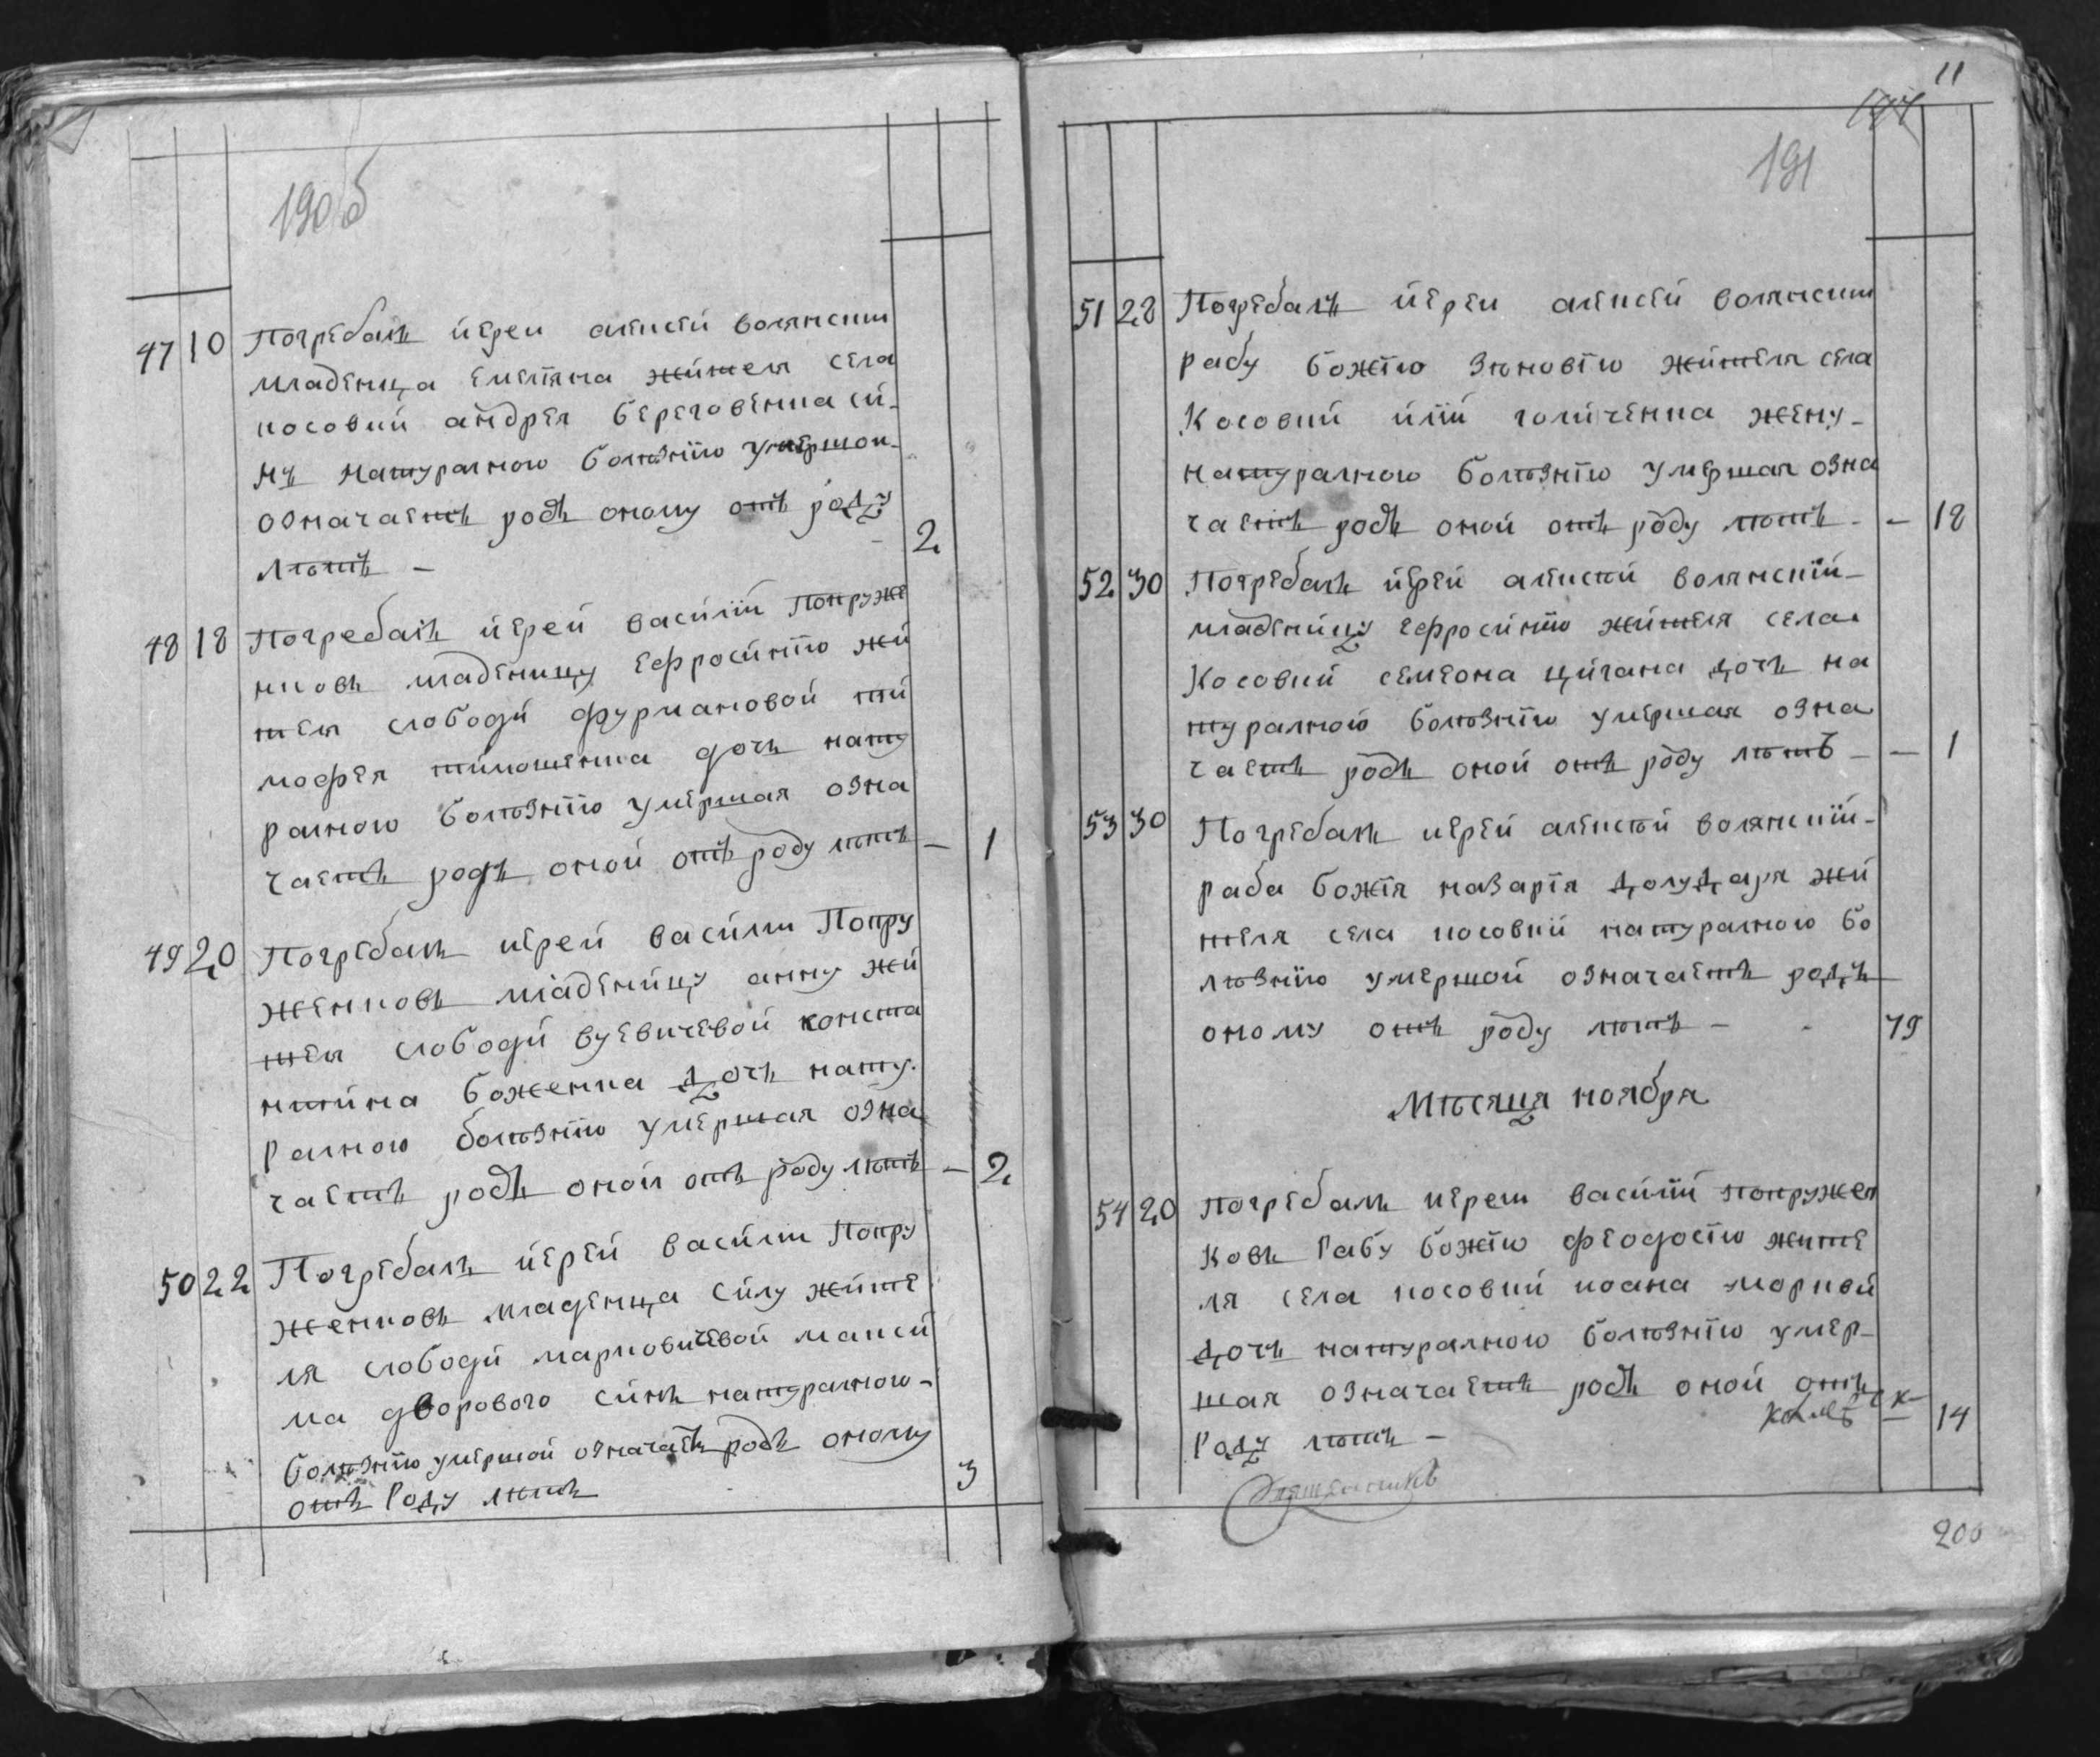 190б
47 10 Погребалъ иерей алексей волянским
младенца емеляна жителя села
косовки андрея береговенка си-
нъ натуралною болѣзнїю умершои-
означаетъ родъ оному отъ роду
лѣтъ - 2
48 18 Погребалъ иерей василій Попруже
нковъ младеницу ефросинїю жи
теля слободи фурмановой ти
мофея тимошенка дочъ нату
ралною болѣзнїю умершая озна
чаетъ родъ оной отъ роду лѣтъ - 1
49 20 Погребалъ иерей василии Попру
женковъ младеницу анну жи
теля слободи вуевичевой конста
нтина боженка дочъ нату-
ралною болѣзнїю умершая озна
чаетъ родъ оной отъ роду лѣтъ - 2
50 22 Погребалъ иерей василии Попру
женковъ младенца силу жите
ля слободи марковичевой макси
ма дворового синъ натуралною-
болѣзнїю умершой означаетъ родъ оному
отъ Роду лѣтъ 3
11
191
51 28 Погребалъ иереи алексей волянским
рабу божїю зѣновїю жителя села
Косовки илїи голиченка жену-
натуралною болѣзнїю умершая озна
чаетъ родъ оной отъ роду лѣтъ - 18
52 30 Погребалъ иерей алексѣй волянскїй-
младеницу ефросинїю жителя села
Косовки семеона цигана дочъ на
туралною болѣзнїю умершая озна
чаетъ родъ оной отъ роду лѣтъ - 1
53 30 Погребалъ иерей алексѣй волянскїй-
раба божїя назарїя долударя жи
теля села косовки натуралною бо
лѣзнїю умершой означаетъ родъ
оному отъ роду лѣтъ - 79
Мѣсяца ноября
54 20 Погребалъ иереи василїй попружен
ковъ Рабу божїю феодосїю жите
ля села косовки иоана моркви
дочъ натуралною болѣзнїю умер-
шая означаетъ родъ оной отъ
Роду лѣтъ - 14
200